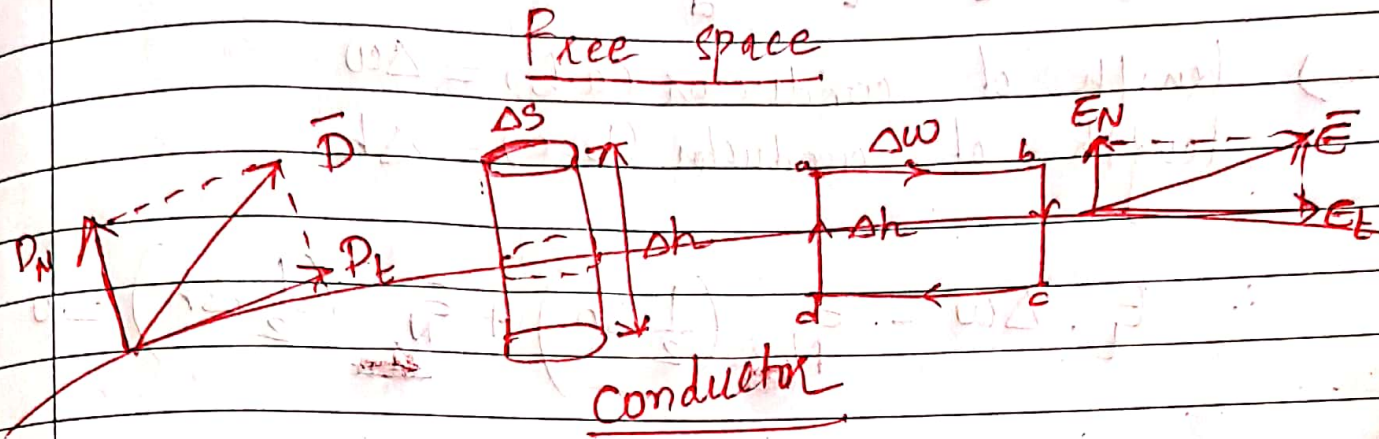 Free space
ΔS
D̄
D_N
D_t
Δh
a
Δw
b
Δh
c
d
E_N
Ē
E_t
conductor